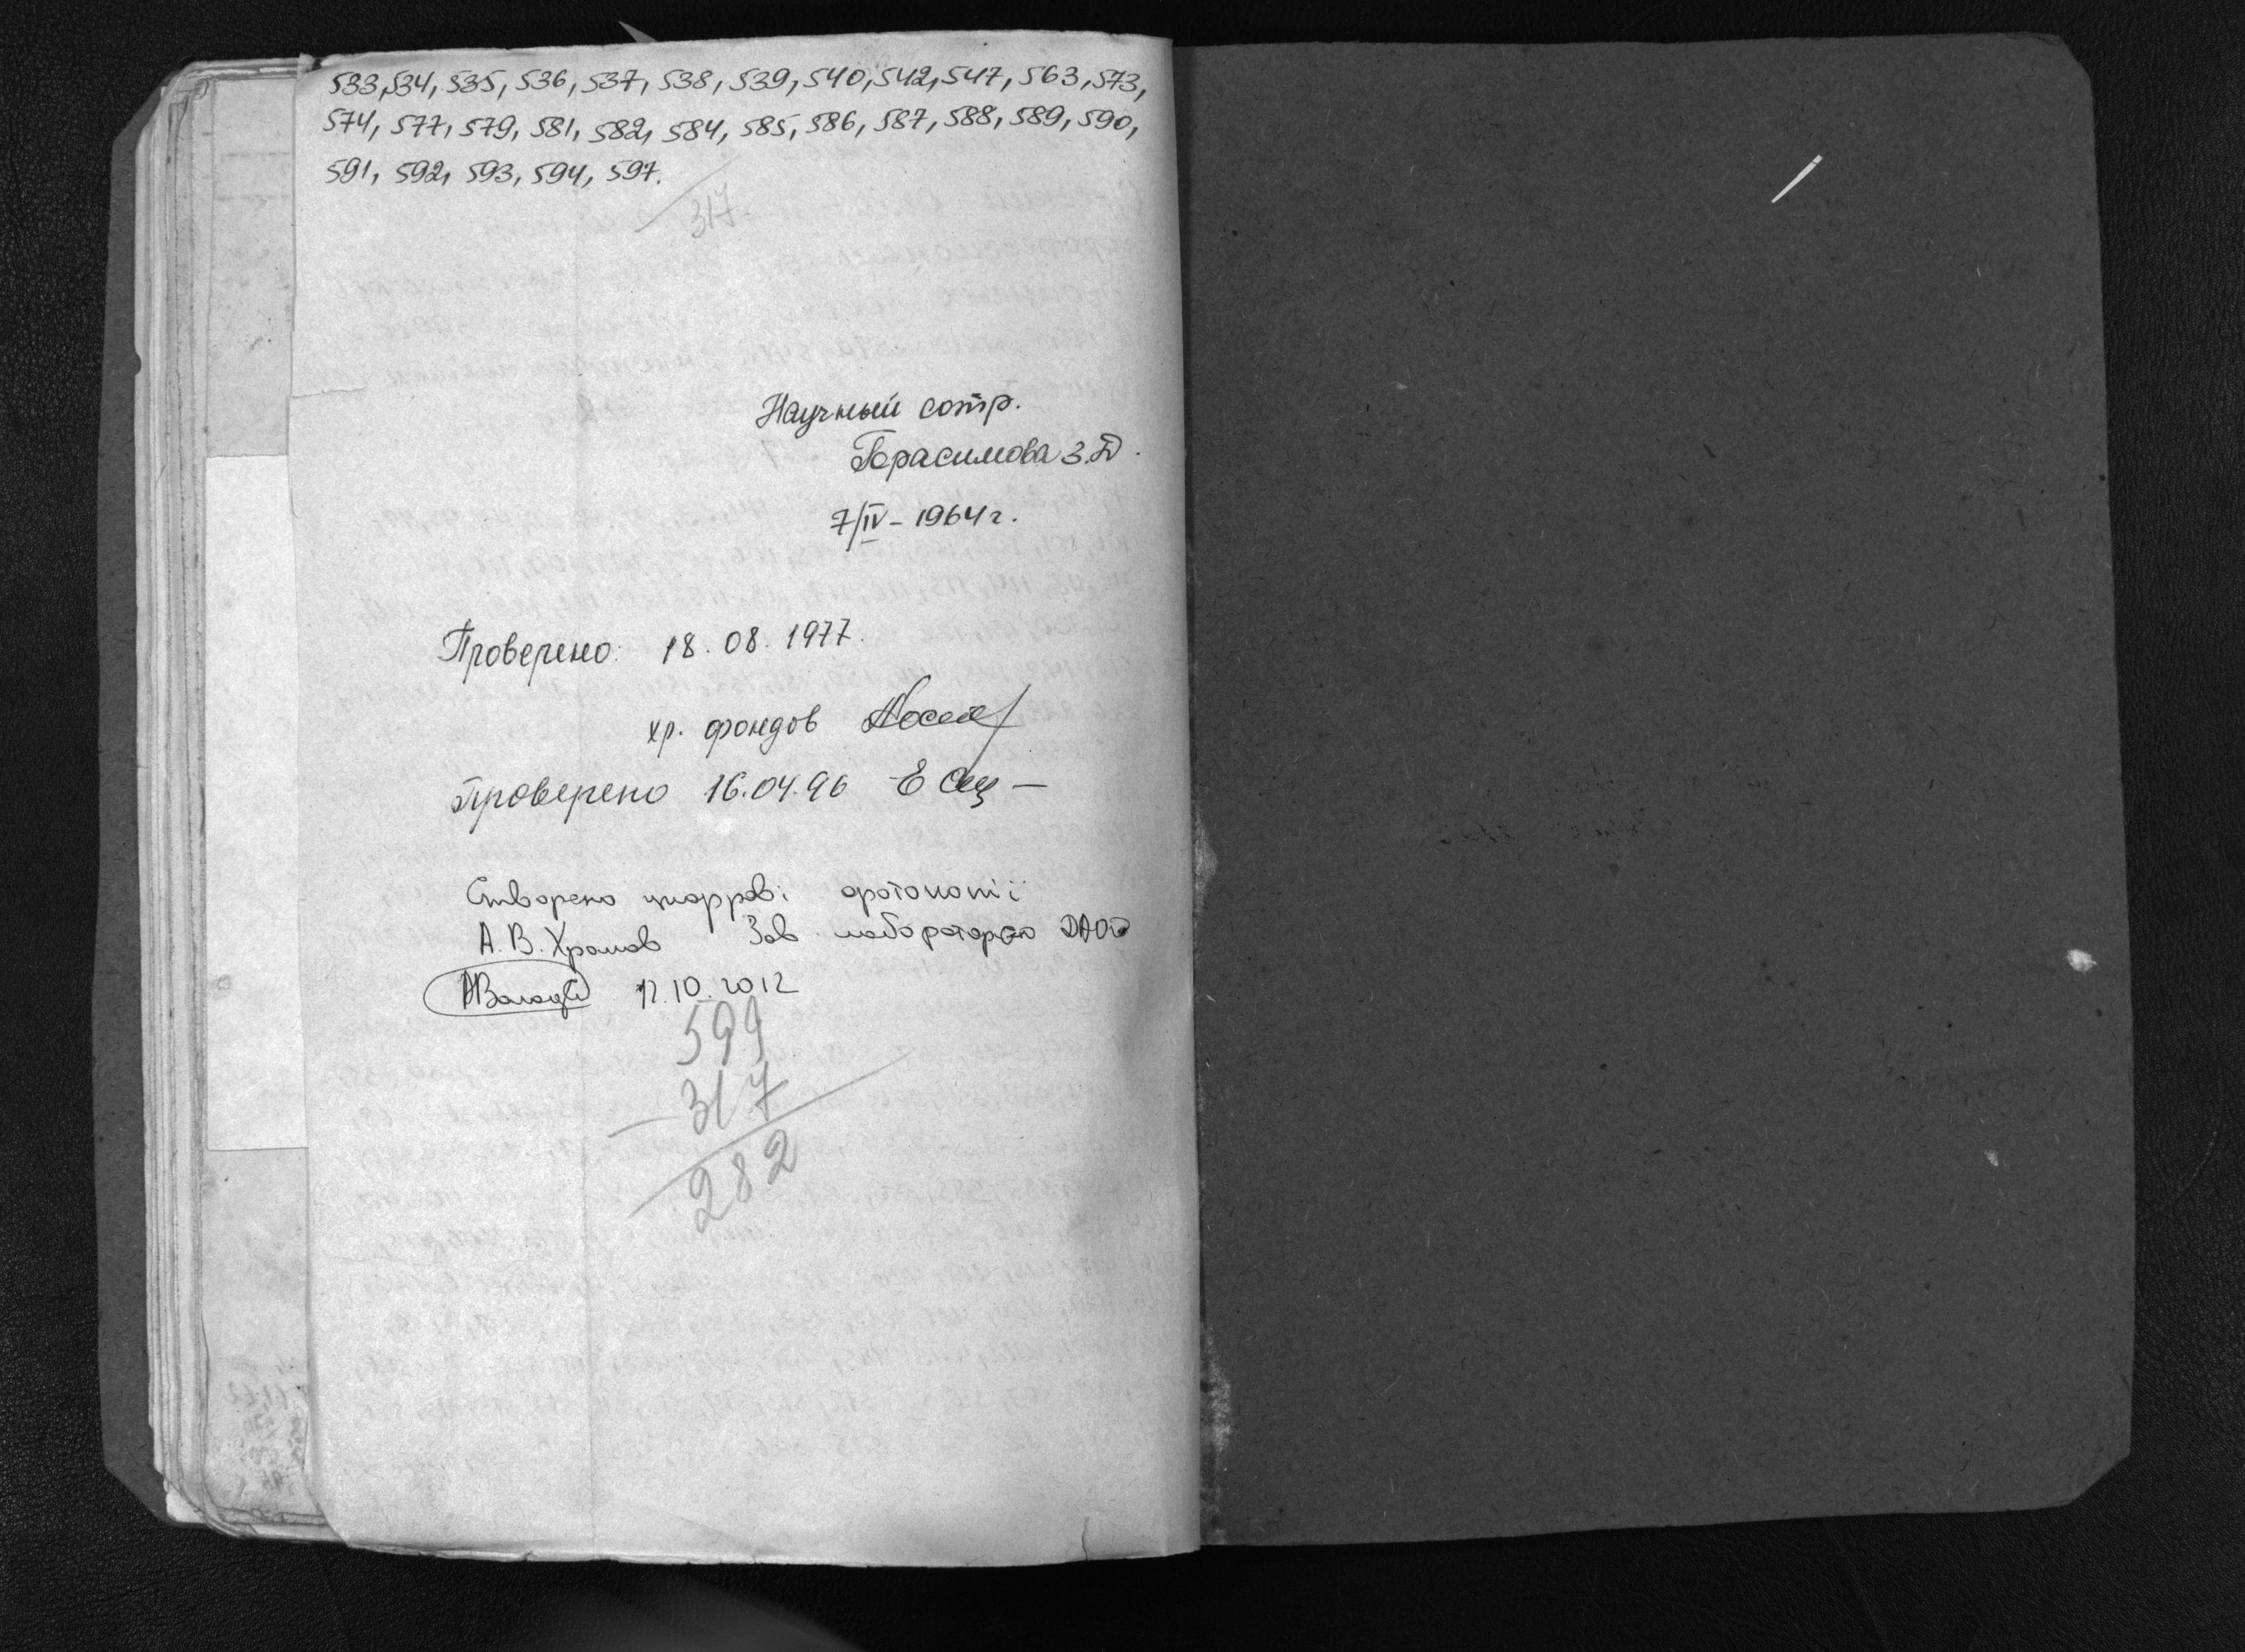 533, 534, 535, 536, 537, 538, 539, 540, 542, 547, 563, 573,
574, 577, 579, 581, 582, 584, 585, 586, 587, 588, 589, 590,
591, 592, 593, 594, 597.
317
Научный сотр.
Герасимова З.П.
7/IV – 1964 г.
Проверено: 18.08.1977.
хр. фондов
Проверено 16.04.96
Створено цифрові фотокопії
А.В. Хромов Зав лабораторією ДАОО
12.10.2012
599
– 317
282